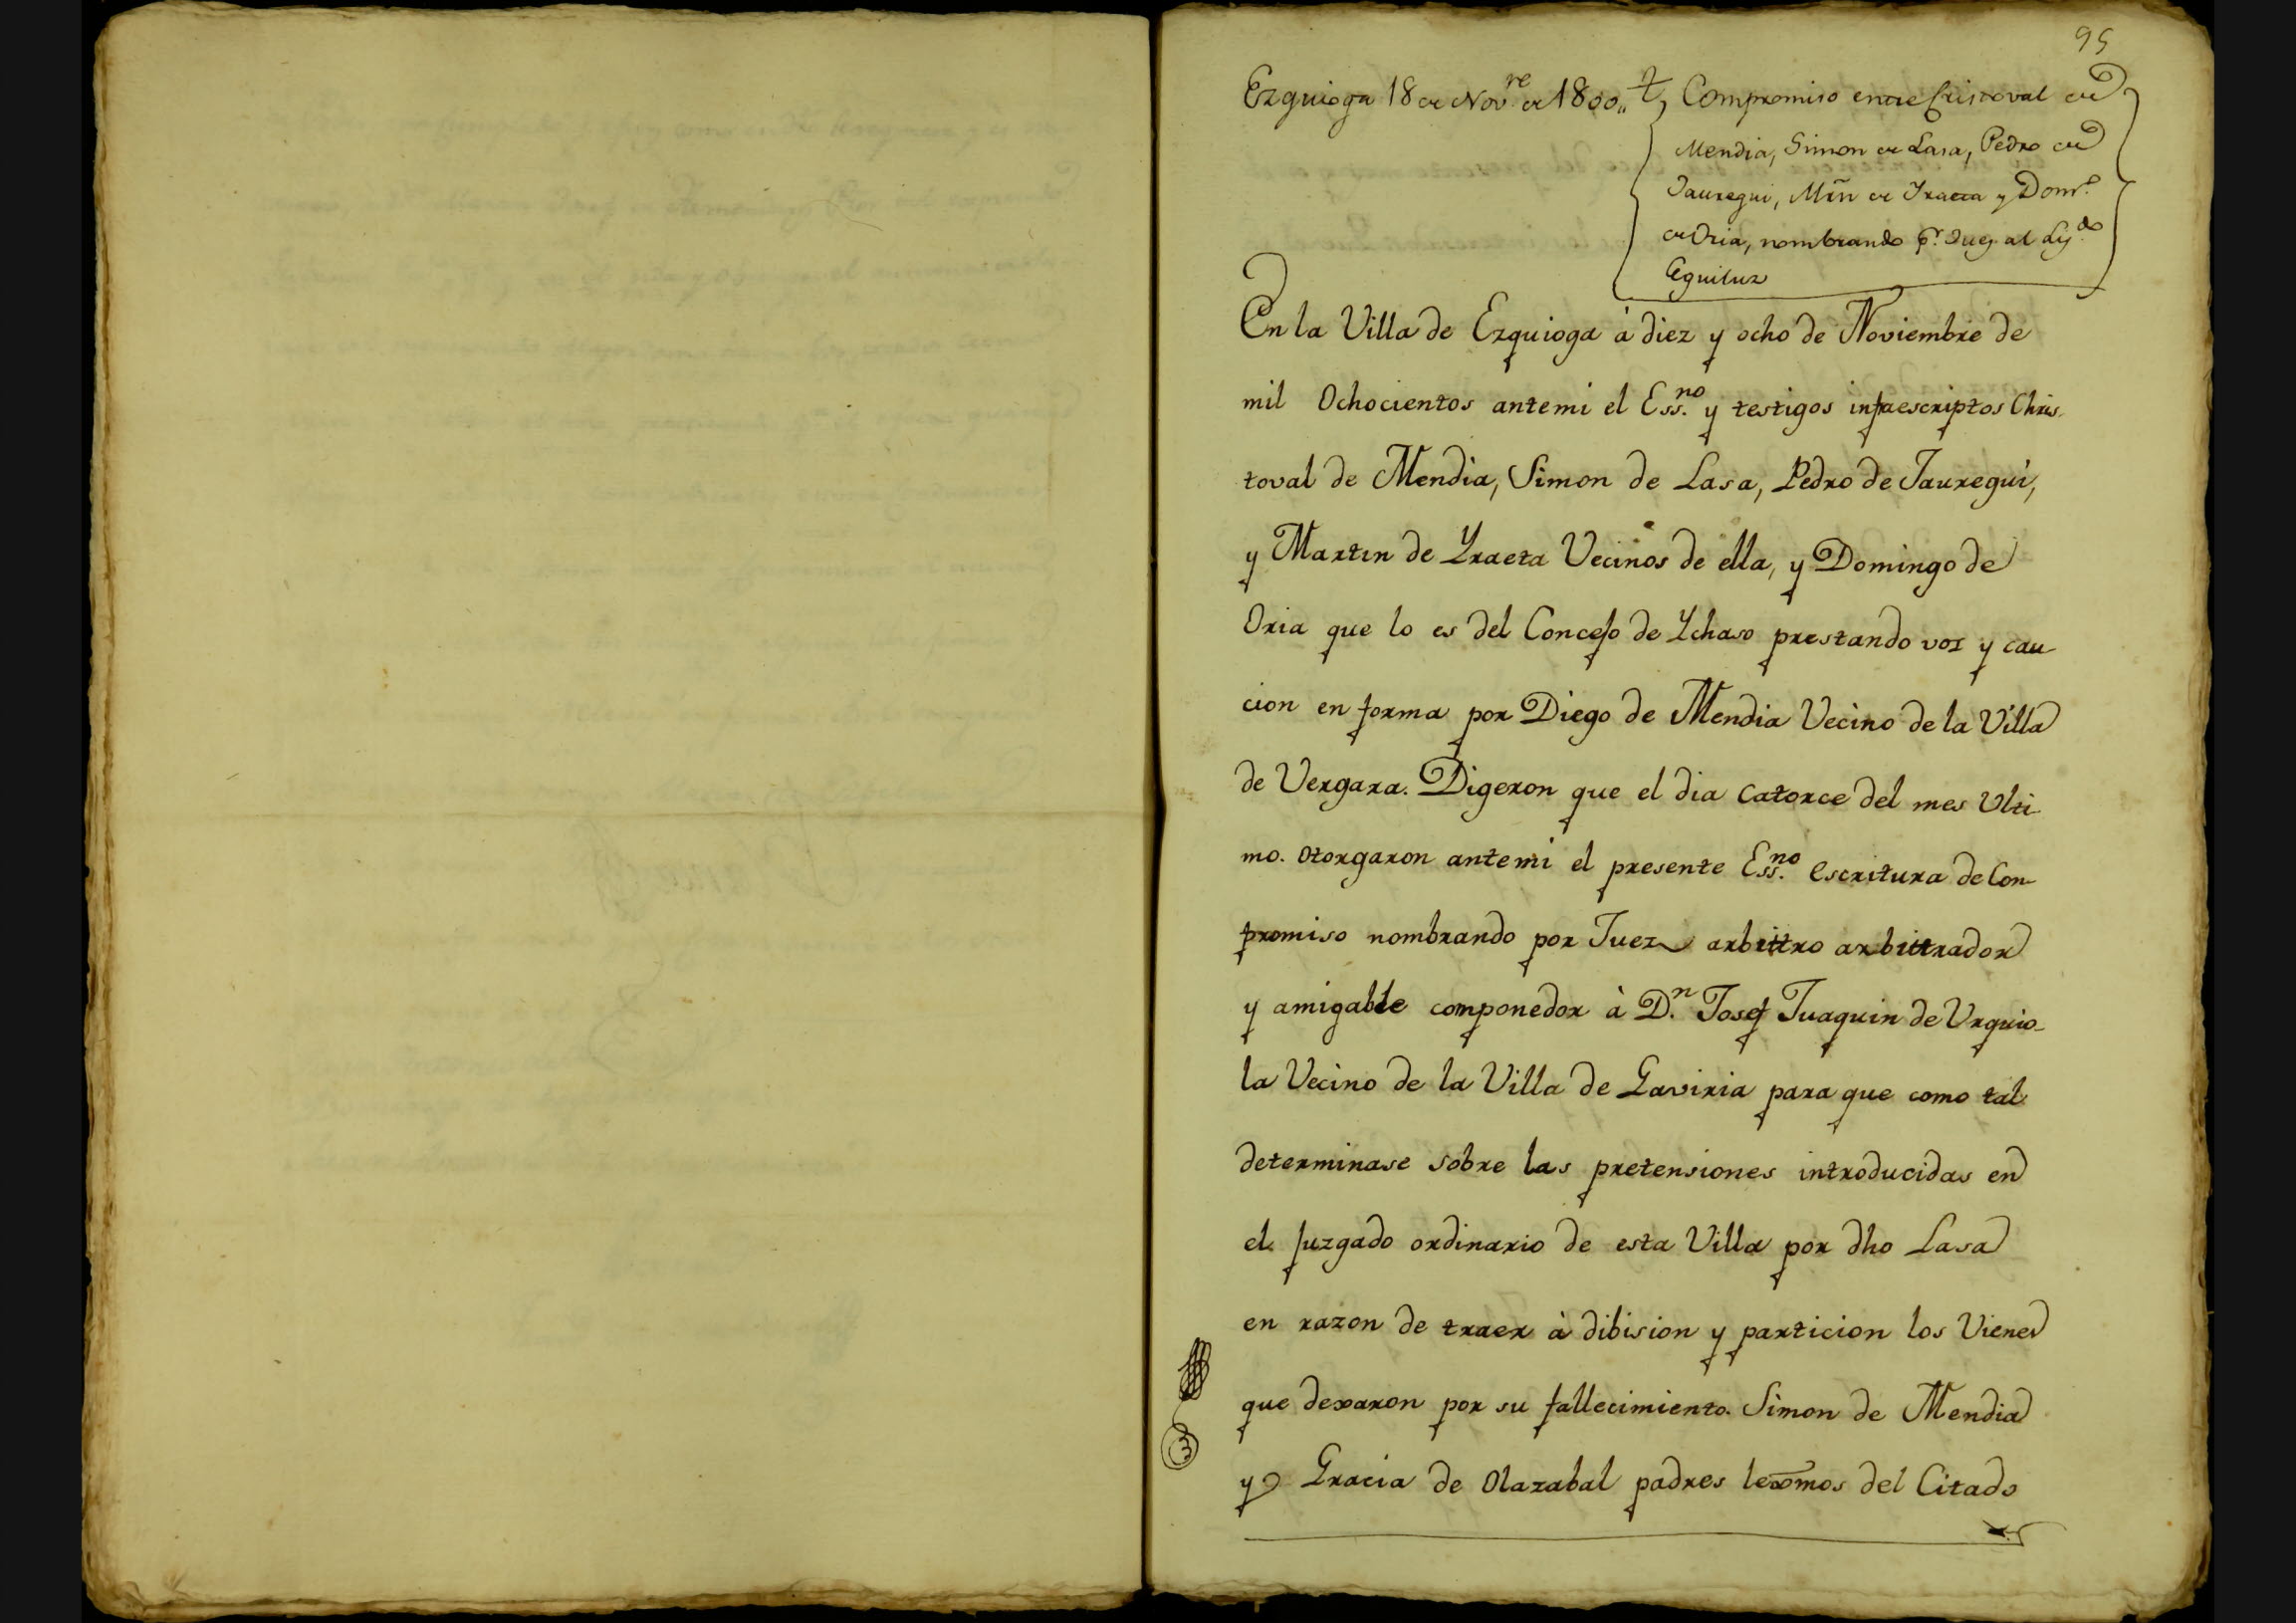 95
Ezquioga 18 de Nov.re de 1800,, Compromiso entre Cristoval de
Mendia, Simon de Lasa, Pedro de
Jauregui, Mrn de Yraeta y Dom.o
de Oria, nombrando p.r Juez al Ly.do
Eguiluz
En la Villa de Ezquioga à diez y ocho de Noviembre de
mil Ochocientos antemi el Ess.no y testigos infraescriptos Chris-
toval de Mendia, Simon de Lasa, Pedro de Jauregui,
y Martin de Yraeta Vecinos de ella, y Domingo de
Oria que lo es del Concejo de Ychaso prestando voz y cau-
cion en forma por Diego de Mendia Vecino de la Villa
de Vergara. Digeron que el dia catorce del mes Ulti-
mo. otorgaron antemi el presente Ess.no escritura de Con-
promiso nombrando por Juez arbittro arbittrador
y amigable componedor à D.n Josef Juaquin de Urquio-
la Vecino de la Villa de Gaviria para que como tal
determinase sobre las pretensiones introducidas en
el juzgado ordinario de esta Villa por dho Lasa
en razon de traer à dibision y particion los Vienes
que dexaron por su fallecimiento. Simon de Mendia
y Gracia de Olazabal padres lexmos del Citado